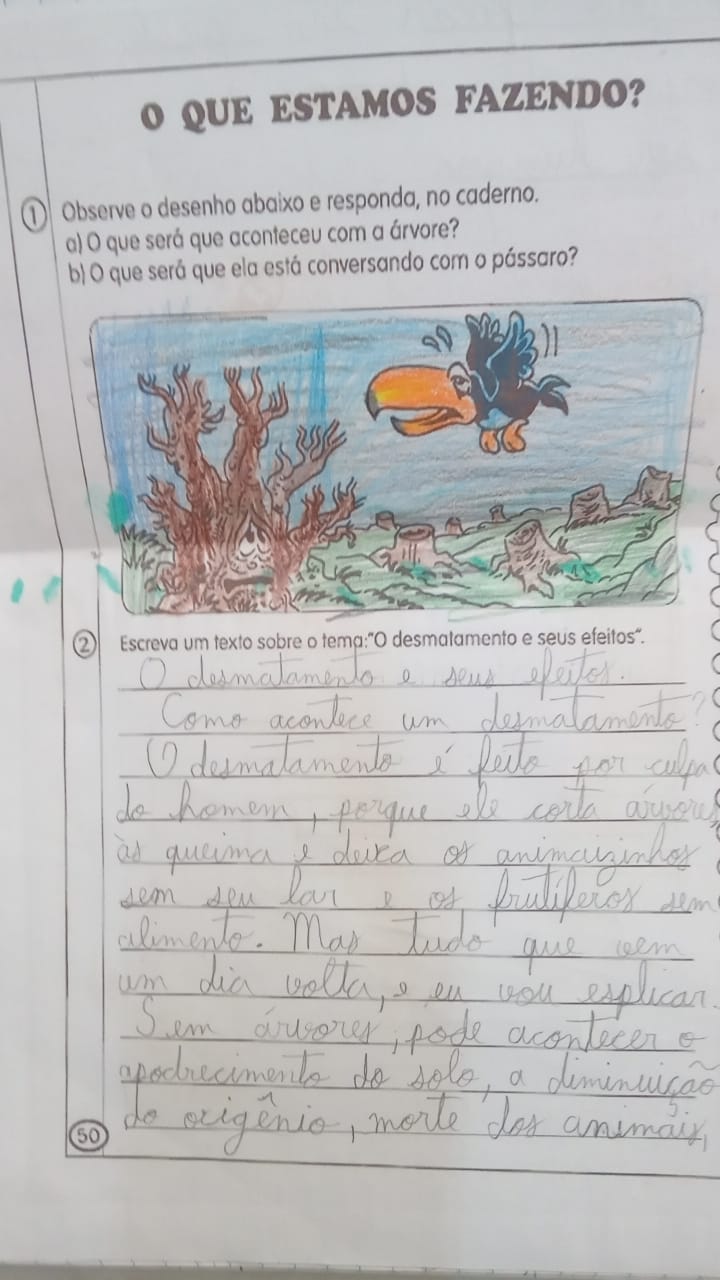 O QUE ESTAMOS FAZENDO?
1 Observe o desenho abaixo e responda, no caderno.
a) O que será que aconteceu com a árvore?
b) O que será que ela está conversando com o pássaro?
2 Escreva um texto sobre o tema:"O desmatamento e seus efeitos".
O desmatamento e seus efeitos.
Como acontece um desmatamento?
O desmatamento é feito por culpa
do homem, porque ele corta árvores
às queima e deixa os animaizinhos
sem seu lar e os frutíferos sem
alimento. Mas tudo que vem
um dia volta, e eu vou esplicar.
Sem árvores, pode acontecer o
apodrecimento do solo, a diminuição
do oxigênio, morte dos animais,
50